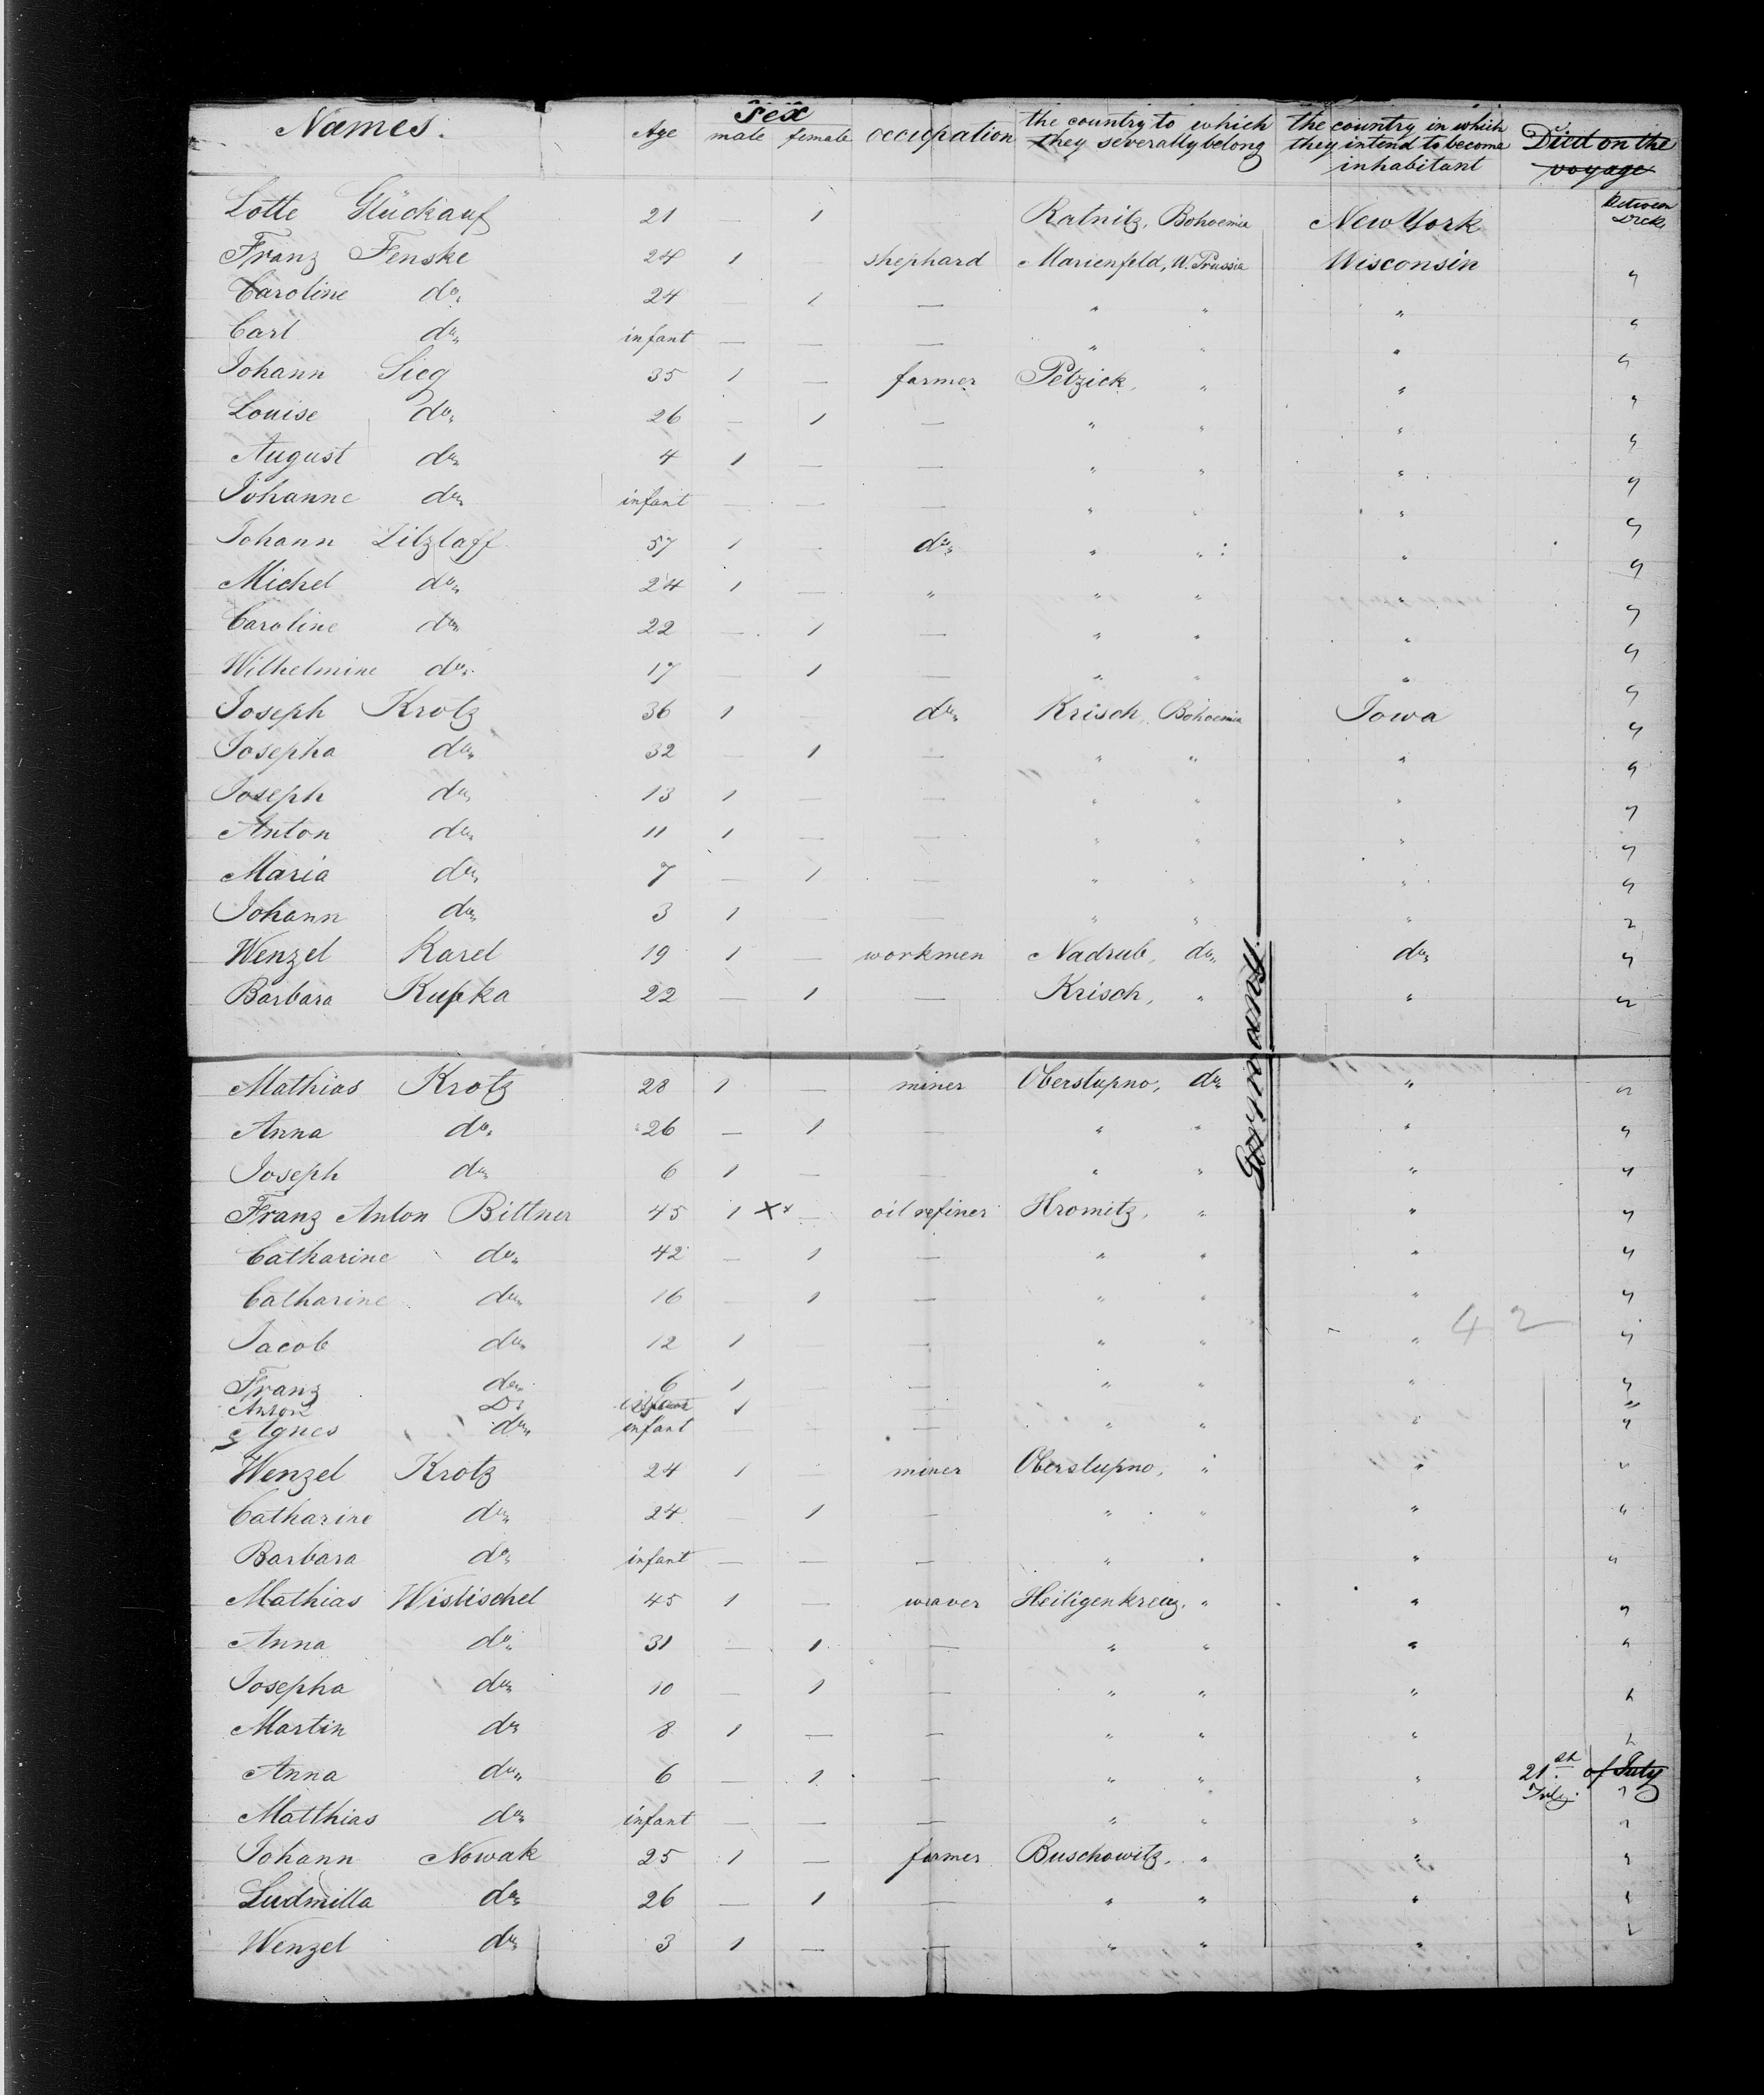 Names. Age Sex male female occupation the country to which they severally belong the country in which they intend to become inhabitant Died on the voyage
Between Deck
Lotte Glückauf 21 — 1 Ratnitz, Bohoemia New York
Franz Fenske 24 1 — shephard Marienfeld, W. Prussia Wisconsin "
Caroline do. 24 — 1 — " " " "
Carl do. infant — — — " " " "
Johann Sieg 35 1 — farmer Petzick, " " "
Louise do. 26 — 1 — " " " "
August do. 4 1 — — " " " "
Johanne do. infant — — — " " " "
Johann Litzlaff 57 1 — do. " " " "
Michel do. 24 1 — " " " " "
Caroline do. 22 — 1 — " " " "
Wilhelmine do. 17 — 1 — " " " "
Joseph Krotz 36 1 — do. Krisch, Bohoemia Iowa "
Josepha do. 32 — 1 — " " " "
Joseph do. 13 1 — — " " " "
Anton do. 11 1 — — " " " "
Maria do. 7 — 1 — " " " "
Johann do. 3 1 — — " " " "
Wenzel Karel 19 1 — workmen Nadrub, do. do. "
Barbara Kupka 22 — 1 — Krisch, " " "
Germany
Mathias Krotz 28 1 — miner Oberstupno, do. " "
Anna do. 26 — 1 — " " " "
Joseph do. 6 1 — — " " " "
Franz Anton Bittner 45 1 X x — oil refiner Hromitz, " " "
Catharine do. 42 — 1 — " " " "
Catharine do. 16 — 1 — " " " "
42
Jacob do. 12 1 — " " " "
Franz do. 6 1 — — " " " "
Anton Do 1 "
Agnes do. infant — " " " "
Wenzel Krotz 24 1 — miner Oberstupno, " " "
Catharine do. 24 1 — " " " "
Barbara do. infant — — — " " " "
Mathias Wistischel 45 1 — weaver Heiligenkreuz, " " "
Anna do. 31 — 1 — " " " "
Josepha do. 10 — 1 — " " " "
Martin do. 8 1 — — " " " "
Anna do. 6 — 1 — " " " 21st of July
July. "
Matthias do. infant — — — " " " "
Johann Nowak 25 1 — farmer Buschowitz, " " "
Ludmilla do. 26 — 1 — " " " "
Wenzel do. 3 1 — — " " " "